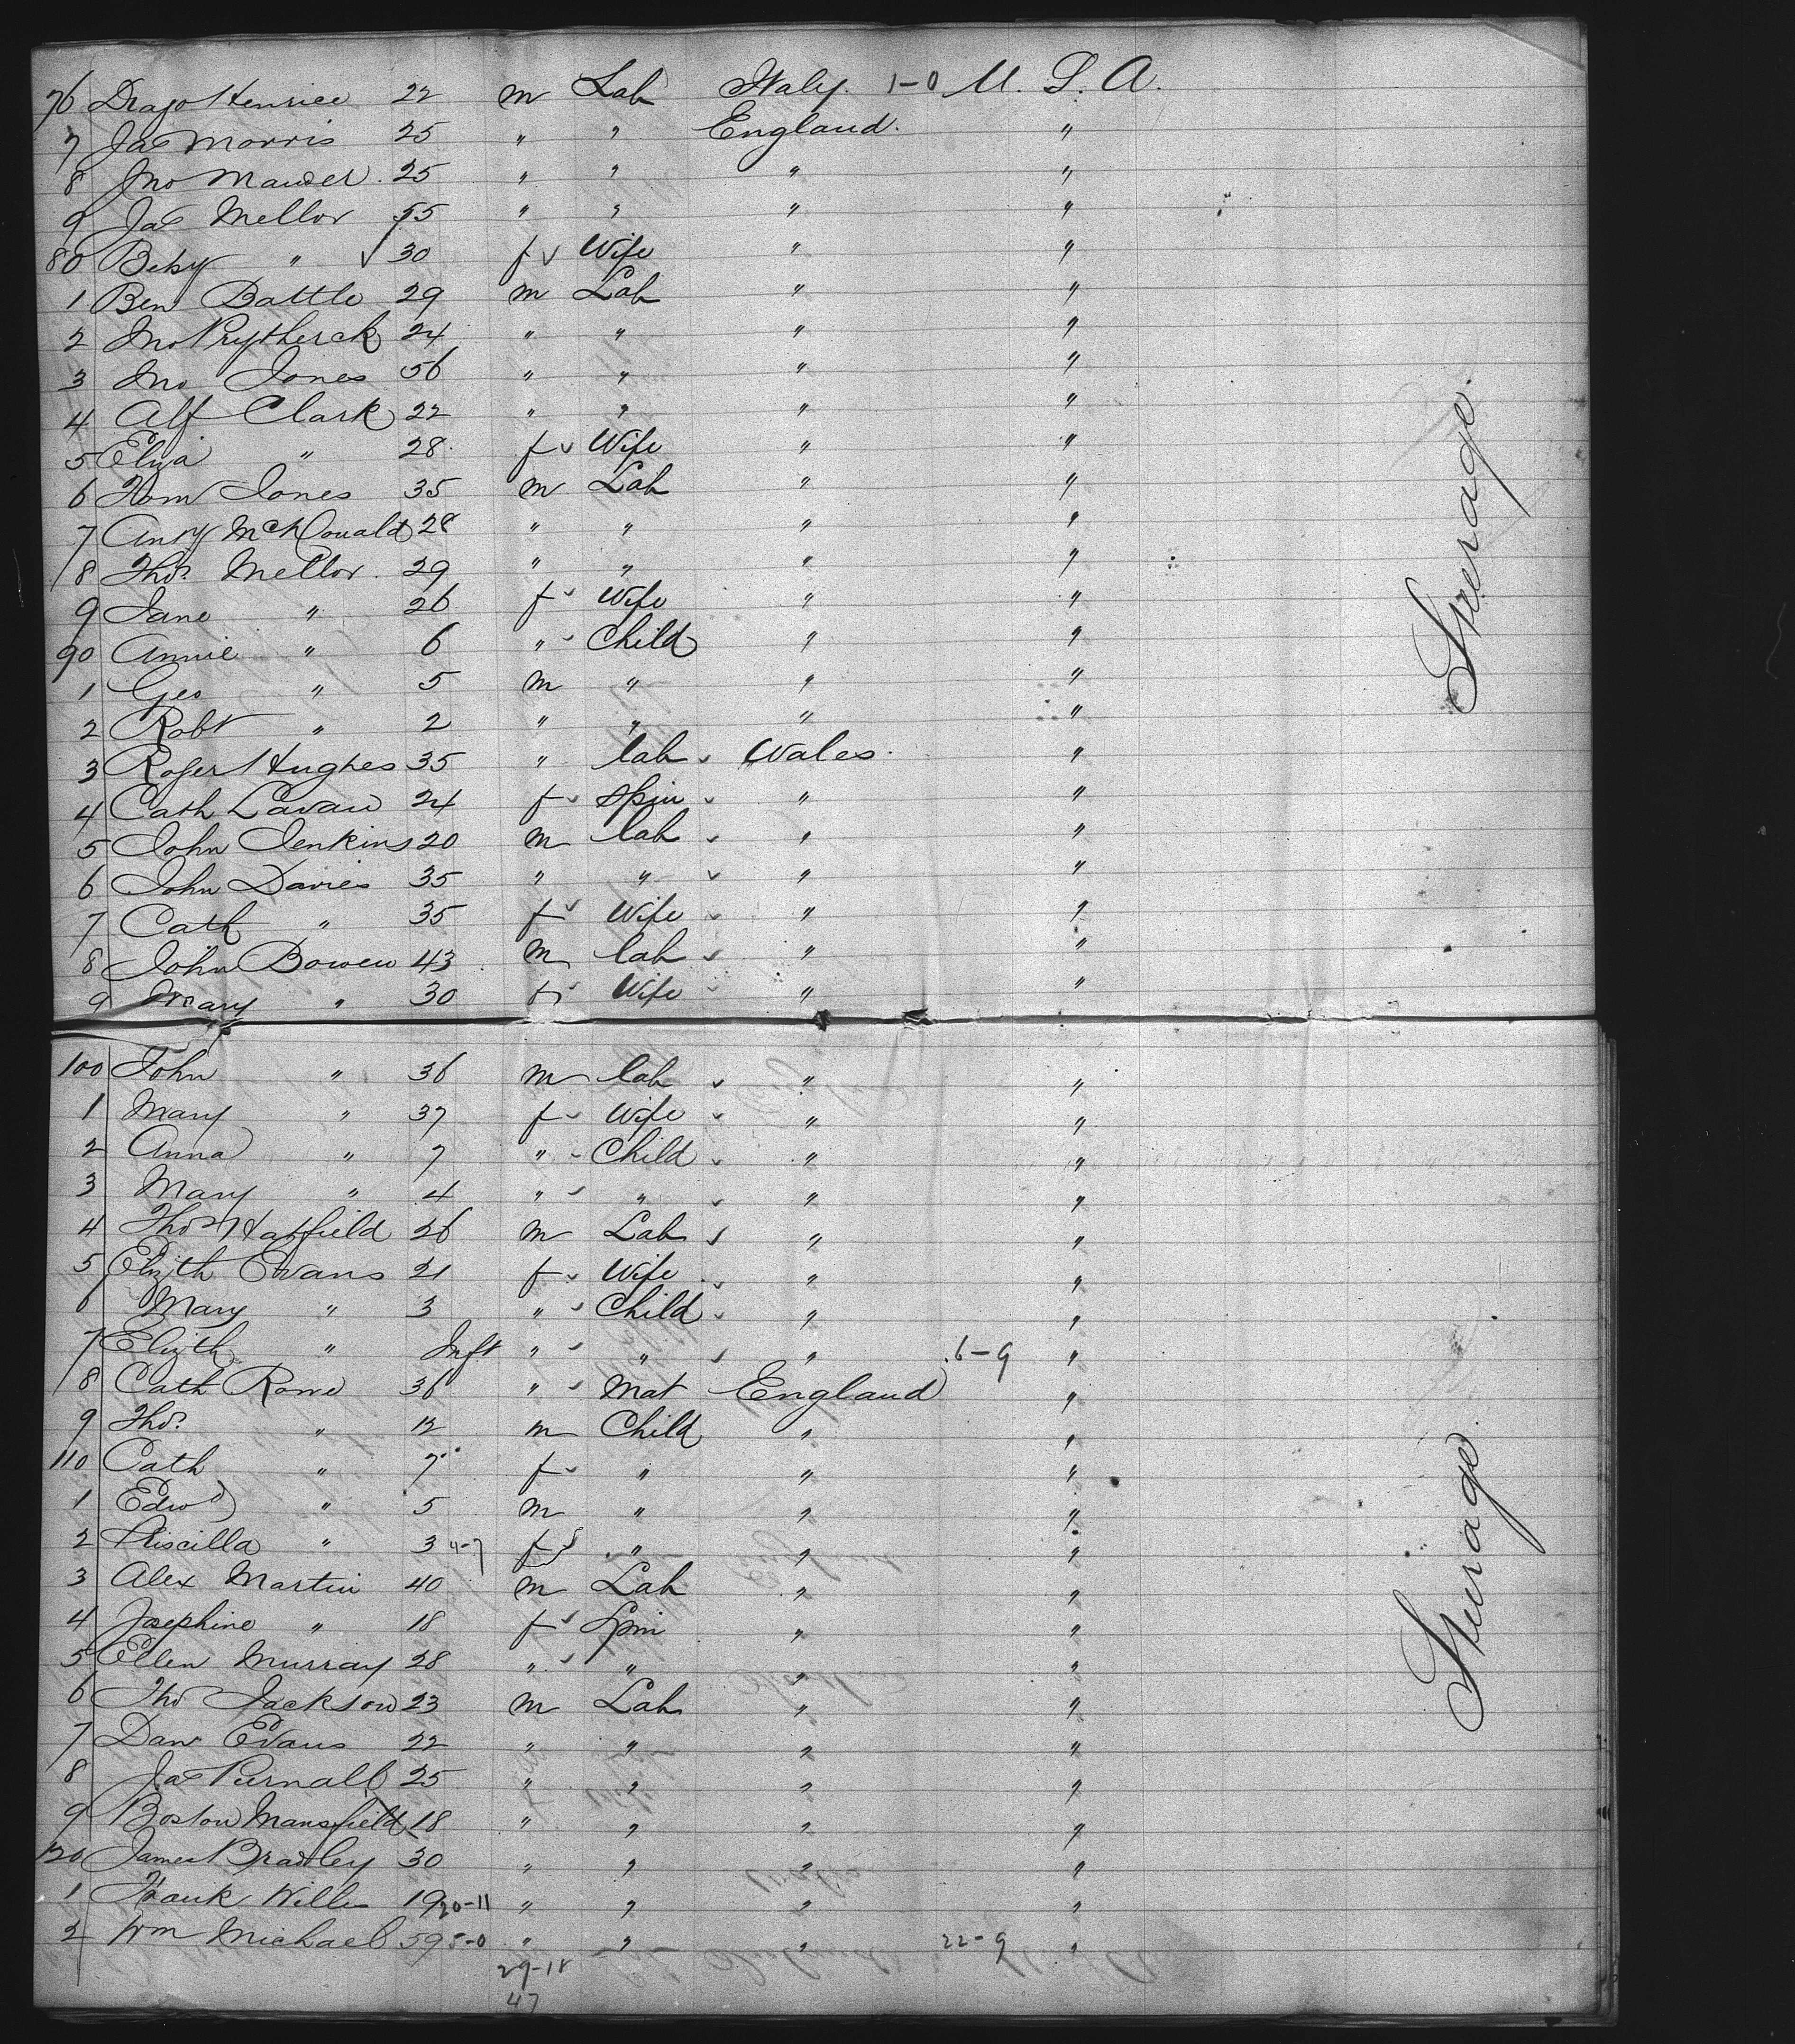 76 Drago Henrice 22 m Lab Italy. 1-0 U. S. A.
7 Jas Morris 25 " " England. "
8 Jno Mauser. 25 " " " "
9 Jas Mellor 55 " " " "
80 Beby " 30 f Wife " "
1 Ben Battle 29 m Lab " "
2 Jno Prytherck 24 " " " "
3 Jno Jones 56 " " " "
4 Alf Clark 22 " " " "
5 Eliza " 28. f Wife " "
6 Tom Jones 35 m Lab " "
7 McDonald 28 " " " "
8 Thos. Mellor. 29 " " " "
9 Jane " 26 f Wife " "
90 Annie " 6 " Child " "
1 Geo " 5 m " " "
2 Robt " 2 " " " "
3 Roger Hughes 35 " lab Wales. "
4 Cath Lavan 24 f Spin " "
5 John Jenkins 20 m lab " "
6 John Davies 35 " " " "
7 Cath " 35 f Wife " "
8 John Bowen 43 m lab " "
9 Mary " 30 f Wife " "
100 John " 36 m lab " "
1 Mary " 37 f Wife " "
2 Anna " 7 " Child " "
3 Mary " 4 " " " "
4 Thos Hatfield 26 m Lab " "
5 Elizth Evans 21 f Wife " "
6 Mary " 3 " Child " "
7 Elizth " Inft " " " 6-9 "
8 Cath Rowe 36 " Mat England "
9 Thos. " 12 m Child " "
110 Cath " 7 f " " "
1 Edwd " 5 m " " "
2 Priscilla " 3 4-7 f " " "
3 Alex Martin 40 m Lab " "
4 Josephine " 18 f Spin " "
5 Ellen Murray 28 " " " "
6 Thos Jackson 23 m Lab " "
7 Dan Evans 22 " " " "
8 Jas Purnall 25 " " " "
9 Boston Mansfield 18 " " " "
120 James Bradley 30 " " " "
1 Frank Willis 19 20-11 " " " "
2 Wm Michael 59 5-0 " " " 22-9 "
29-18
47
Steerage.
Steerage